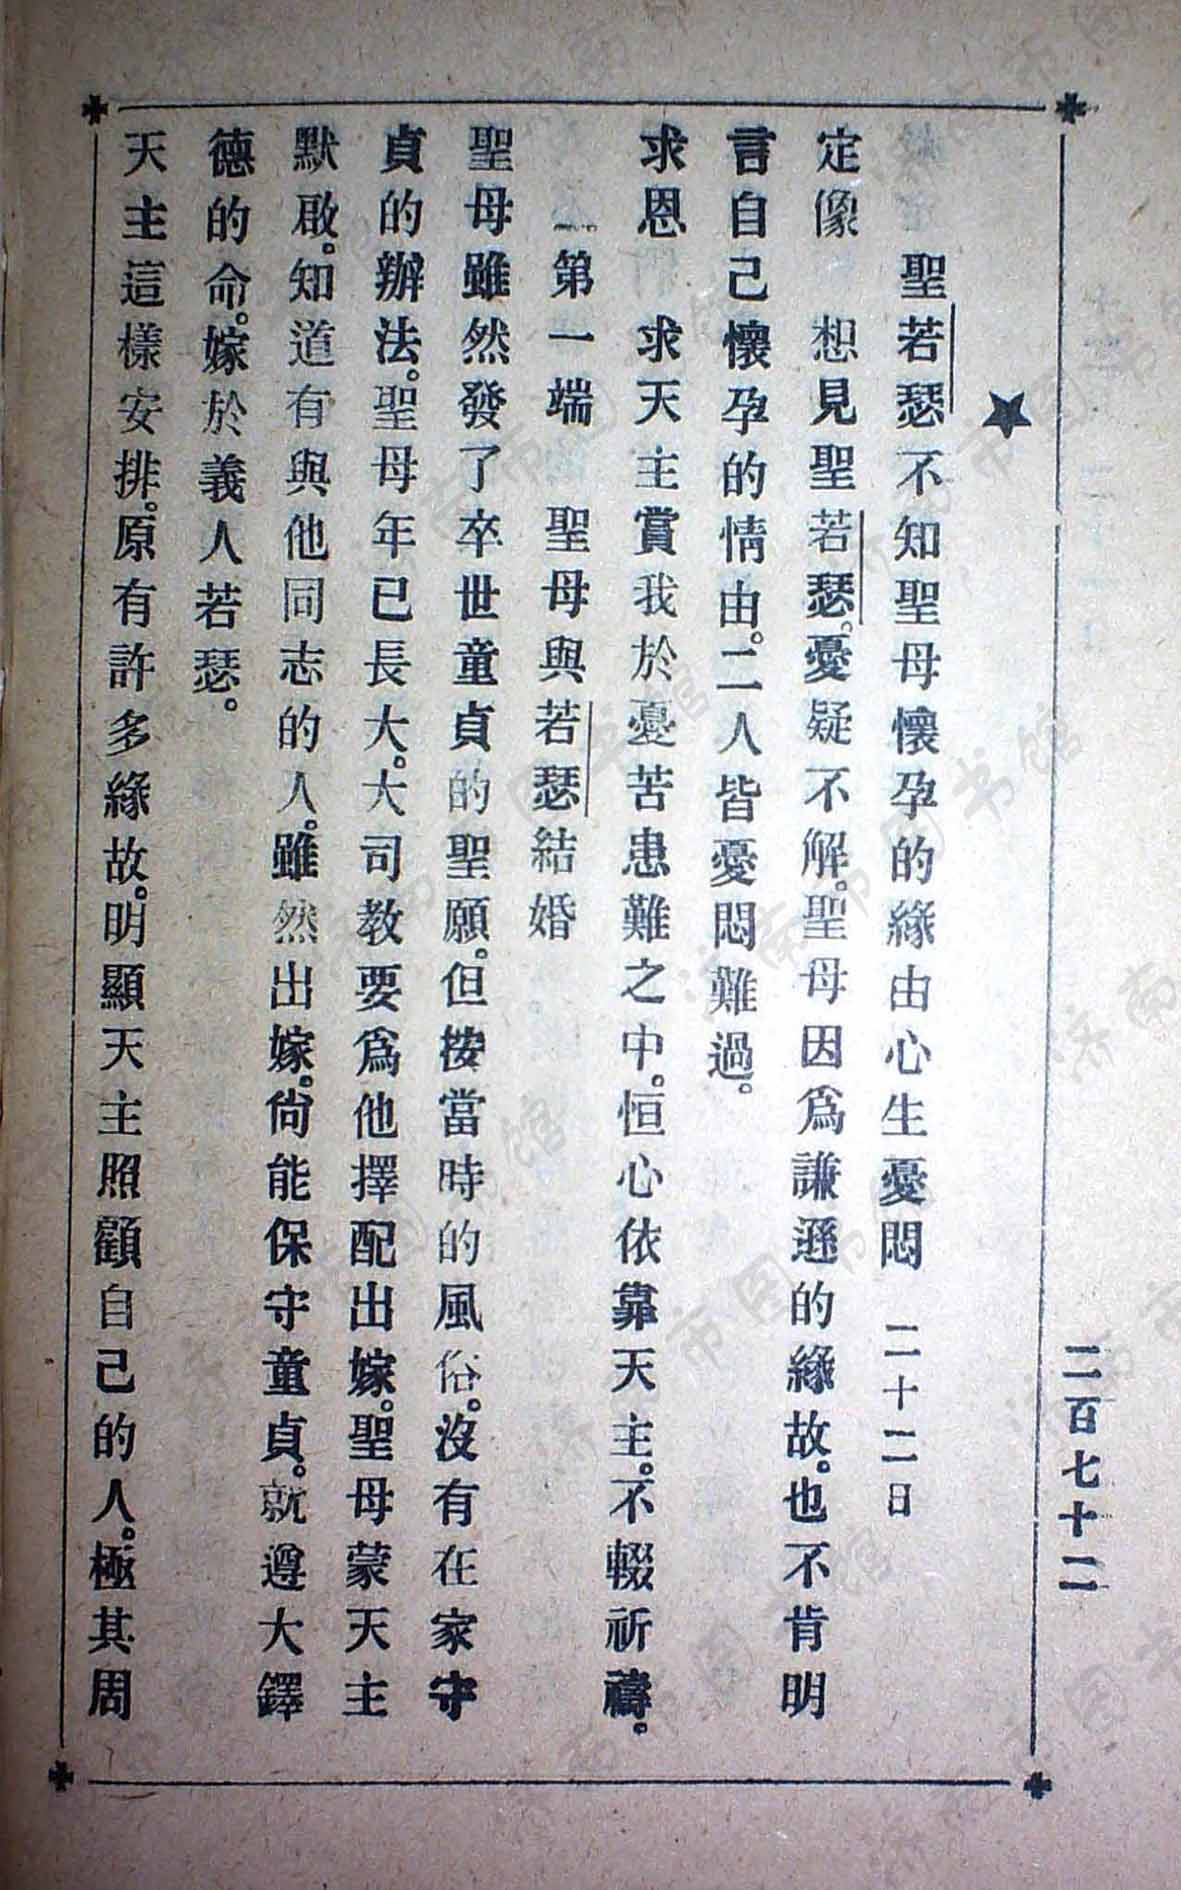 二百七十二
聖若瑟不知聖母懷孕的緣由心生憂悶　二十二日
定像　想見聖若瑟。憂疑不解。聖母因爲謙遜的緣故。也不肯明
言自己懷孕的情由。二人皆憂悶難過。
求恩　求天主賞我於憂苦患難之中。恒心依靠天主。不輟祈禱。
第一端　聖母與若瑟結婚
聖母雖然發了卒世童貞的聖願。但按當時的風俗。沒有在家守
貞的辦法。聖母年已長大。大司教要爲他擇配出嫁。聖母蒙天主
默啟。知道有與他同志的人。雖然出嫁。尙能保守童貞。就遵大鐸
德的命。嫁於義人若瑟。
天主這樣安排。原有許多緣故。明顯天主照顧自己的人。極其周